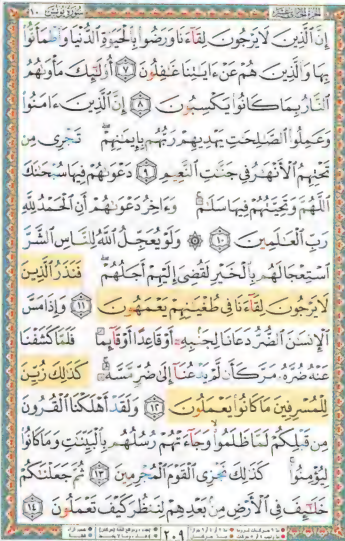 سُورَةُ يُونُسَ ١٠
إِنَّ الَّذِينَ لَا يَرْجُونَ لِقَاءَنَا وَرَضُوا بِالْحَيَوٰةِ الدُّنْيَا وَاطْمَأَنُّوا
بِهَا وَالَّذِينَ هُمْ عَنْ ءَايَٰتِنَا غَٰفِلُونَ ٧ أُولَٰئِكَ مَأْوَىٰهُمُ
النَّارُ بِمَا كَانُوا يَكْسِبُونَ ٨ إِنَّ الَّذِينَ ءَامَنُوا
وَعَمِلُوا الصَّٰلِحَٰتِ يَهْدِيهِمْ رَبُّهُم بِإِيمَٰنِهِمْ ۖ تَجْرِي مِن
تَحْتِهِمُ الْأَنْهَٰرُ فِي جَنَّٰتِ النَّعِيمِ ٩ دَعْوَىٰهُمْ فِيهَا سُبْحَٰنَكَ
اللَّهُمَّ وَتَحِيَّتُهُمْ فِيهَا سَلَٰمٌ ۚ وَءَاخِرُ دَعْوَىٰهُمْ أَنِ الْحَمْدُ لِلَّهِ
رَبِّ الْعَٰلَمِينَ ١٠ ۞ وَلَوْ يُعَجِّلُ اللَّهُ لِلنَّاسِ الشَّرَّ
اسْتِعْجَالَهُم بِالْخَيْرِ لَقُضِيَ إِلَيْهِمْ أَجَلُهُمْ ۖ فَنَذَرُ الَّذِينَ
لَا يَرْجُونَ لِقَاءَنَا فِي طُغْيَٰنِهِمْ يَعْمَهُونَ ١١ وَإِذَا مَسَّ
الْإِنسَٰنَ الضُّرُّ دَعَانَا لِجَنبِهِ أَوْ قَاعِدًا أَوْ قَائِمًا فَلَمَّا كَشَفْنَا
عَنْهُ ضُرَّهُ مَرَّ كَأَن لَّمْ يَدْعُنَا إِلَىٰ ضُرٍّ مَّسَّهُ ۚ كَذَٰلِكَ زُيِّنَ
لِلْمُسْرِفِينَ مَا كَانُوا يَعْمَلُونَ ١٢ وَلَقَدْ أَهْلَكْنَا الْقُرُونَ
مِن قَبْلِكُمْ لَمَّا ظَلَمُوا ۙ وَجَاءَتْهُمْ رُسُلُهُم بِالْبَيِّنَٰتِ وَمَا كَانُوا
لِيُؤْمِنُوا ۚ كَذَٰلِكَ نَجْزِي الْقَوْمَ الْمُجْرِمِينَ ١٣ ثُمَّ جَعَلْنَٰكُمْ
خَلَٰئِفَ فِي الْأَرْضِ مِن بَعْدِهِمْ لِنَنظُرَ كَيْفَ تَعْمَلُونَ ١٤
٢٠٩